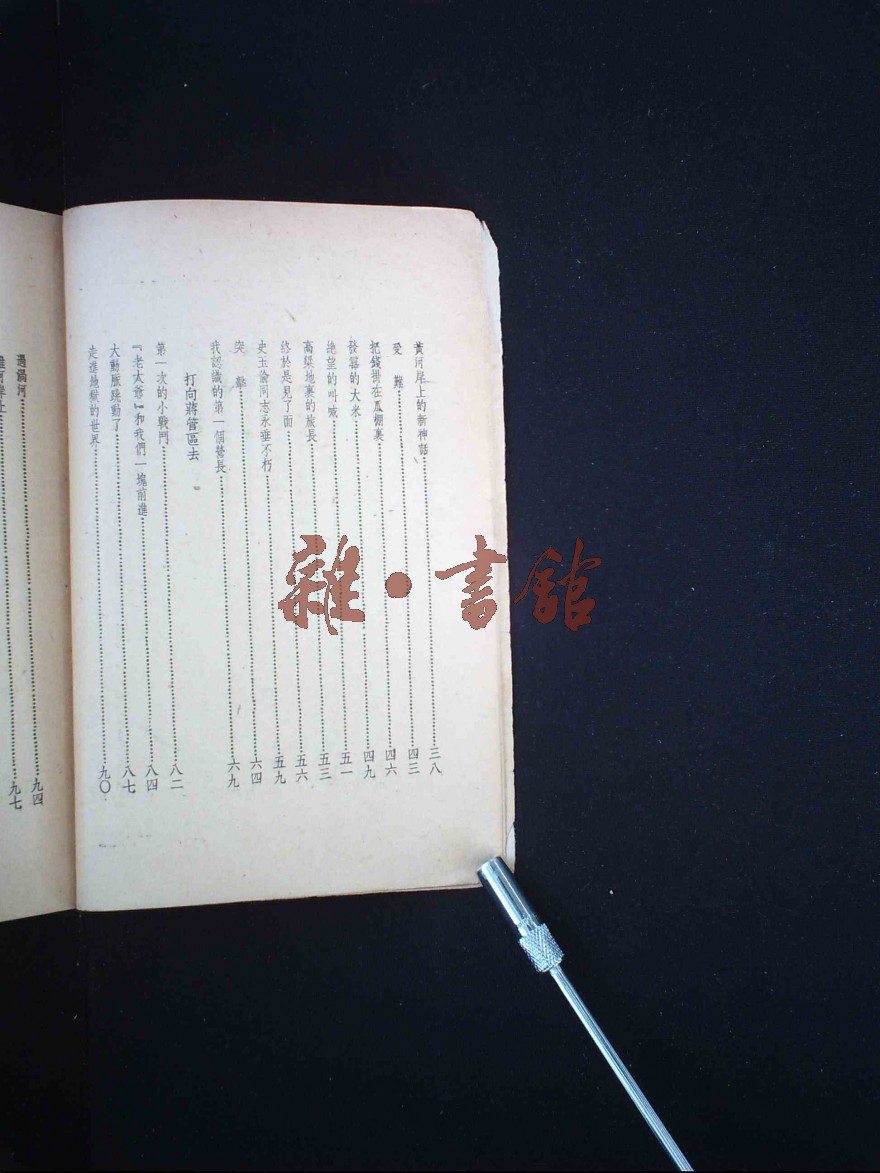 黃河岸上的新神話……三八
受難……四三
把錢掛在瓜棚裏……四六
發霉的大米……四九
絶望的叫喊……五一
高梁地裏的族長……五三
終於是見了面……五六
史玉倫同志永垂不朽……五九
突擊……六四
我認識的第一個營長……六九
打向蔣管區去
第一次的小戰鬥……八二
『老太爺』和我們一塊前進……八四
大動脈跳動了……八七
走進地獄的世界……九〇
過渦河……九四
河岸上……九七
雜·書館